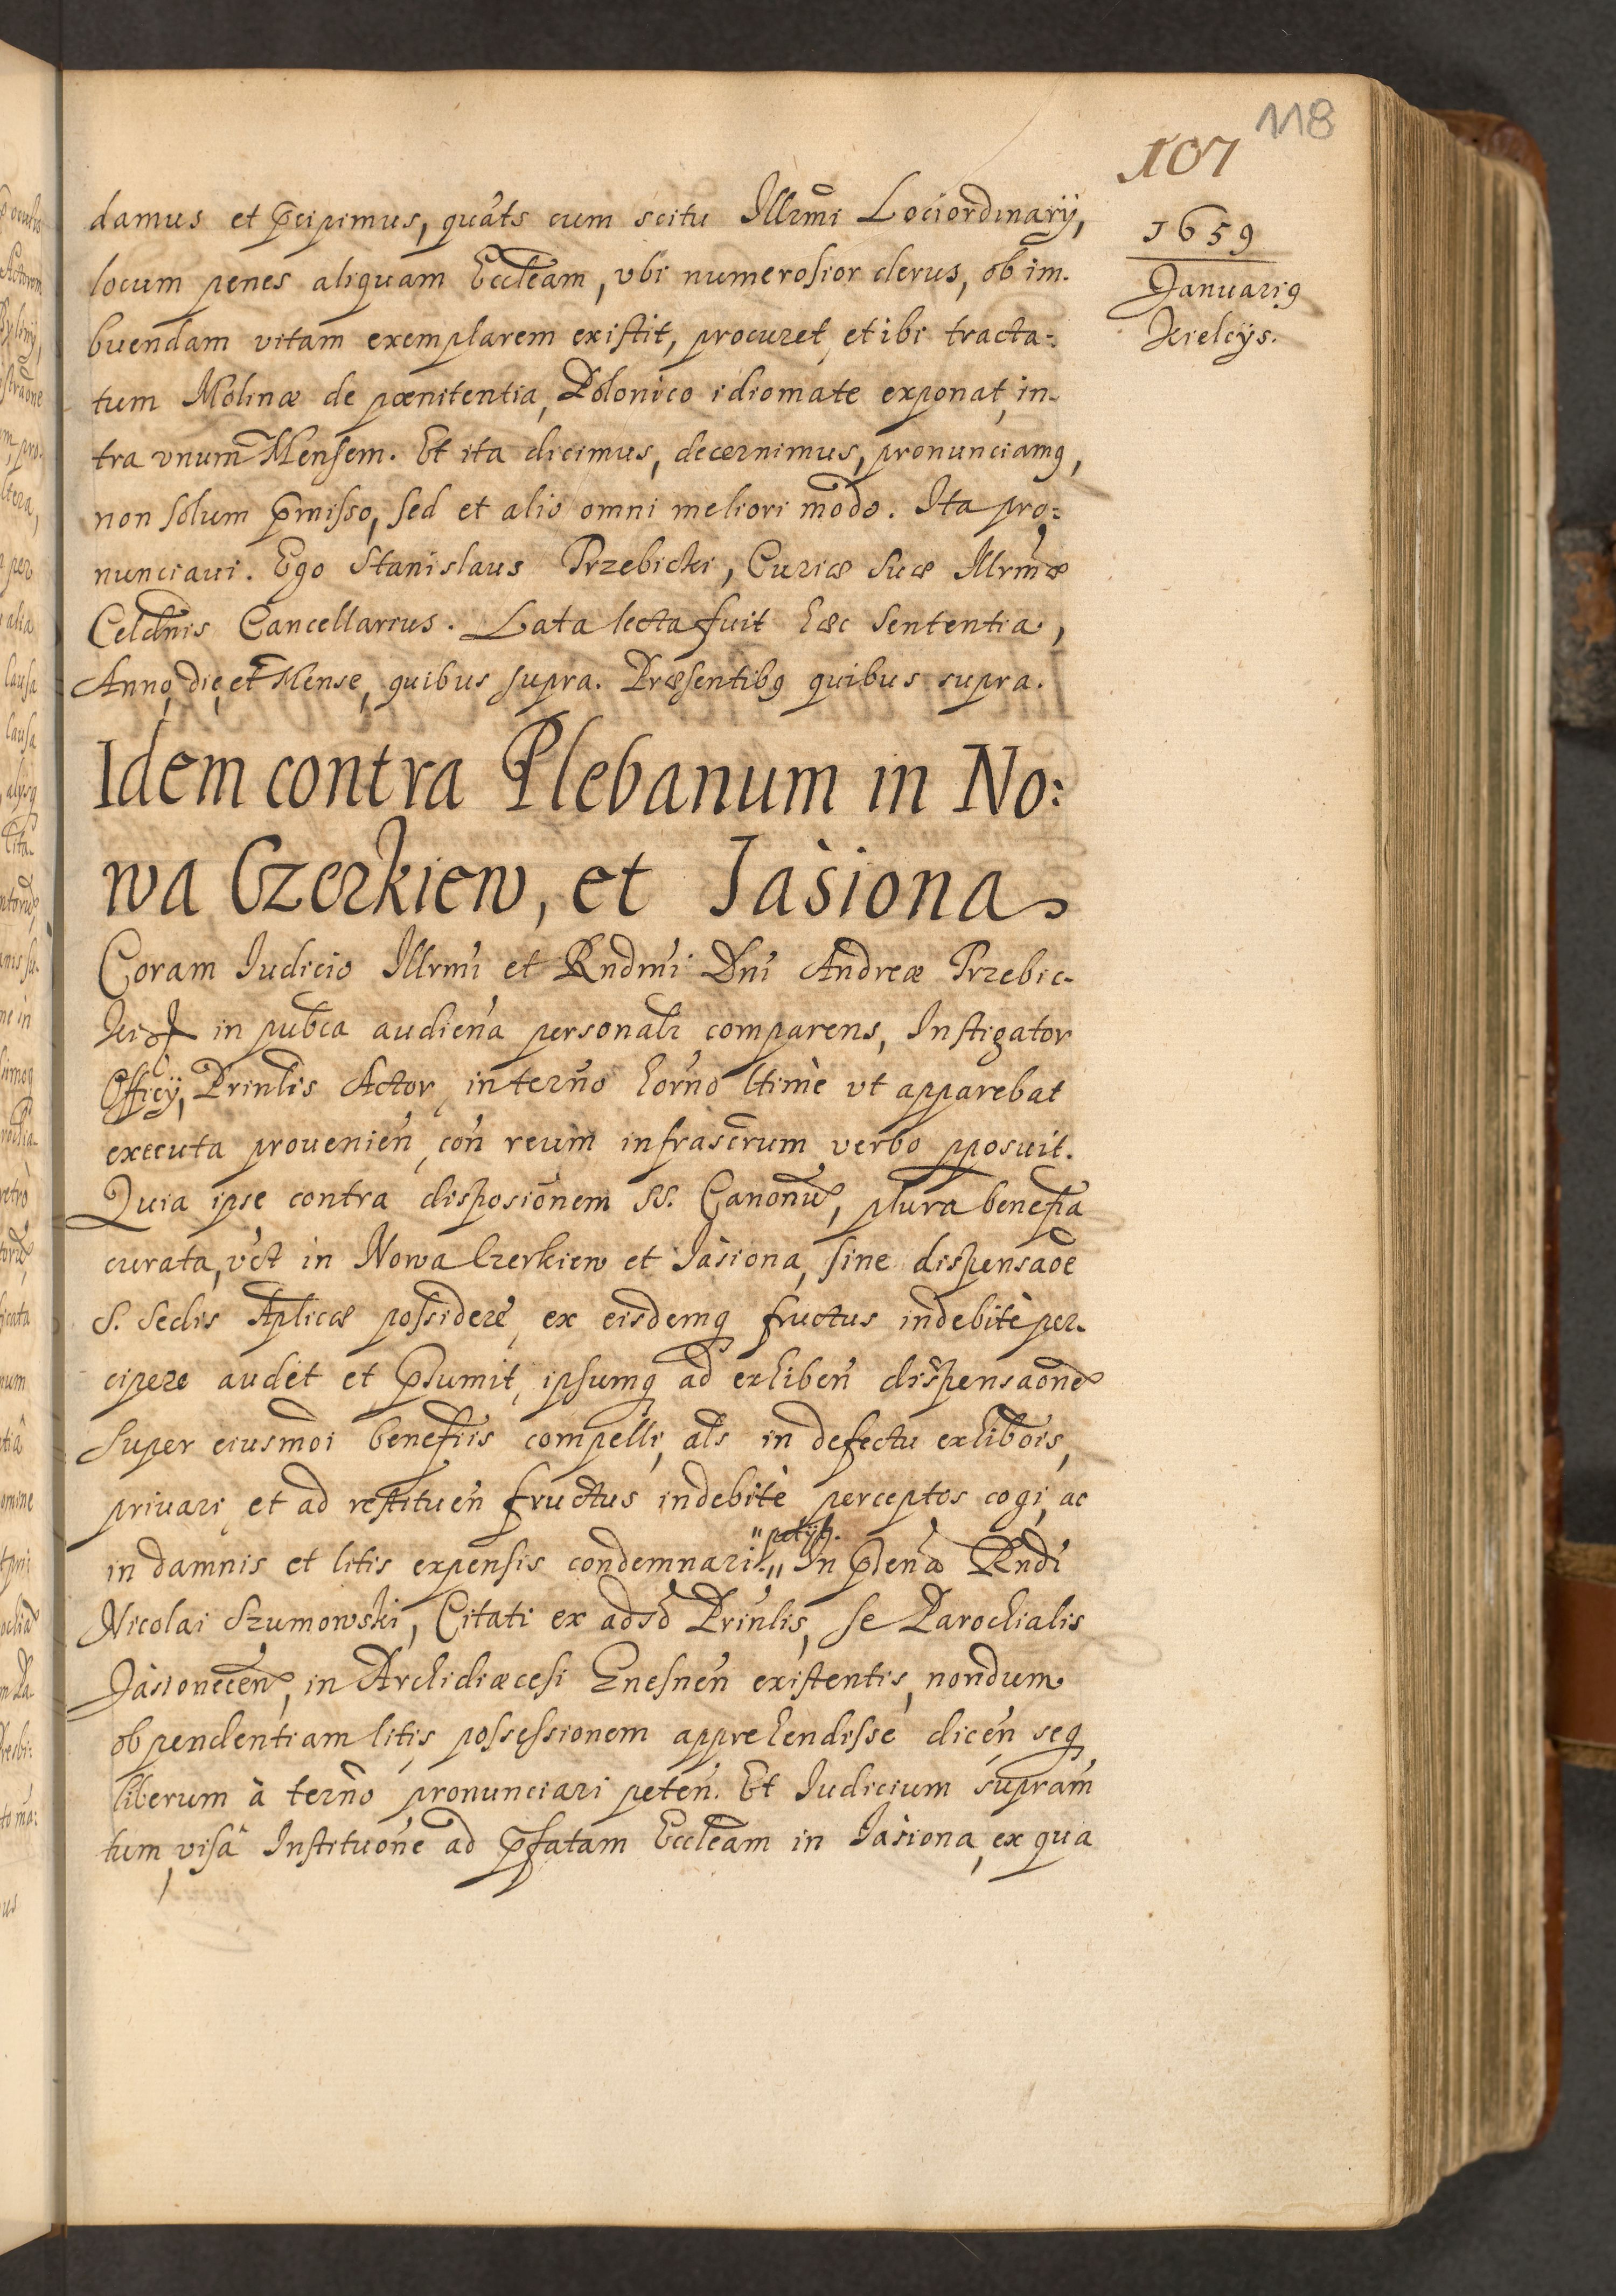 118
107
1659
Januarig
Kielcÿs.
damus et p̃cipimus, quáts cum scitu Illrm̃i Lociordinarÿ,
locum penes aliquam Eccleãm, vbi numerosior clerus, ob im-
buendam vitam exemplarem existit, procuret, et ibi tracta-
tum Molinæ de pœnitentia, Polonico idiomate exponat, in-
tra vnum Mensem. Et ita dicimus, decernimus, pronunciamq,
non solum p̃misso, sed et alio omni meliori modo. Ita pro-
nunciaui. Ego Stanislaus Przebicki, Curiæ suæ Illrm̃æ
Celdnis Cancellarius. Lata lecta fuit hæc sententia,
Anno, die, et Mense, quibus supra. Præsentibq quibus supra.
Idem contra Plebanum in No:
wa Czerkiew, et Jasiona
Coram Iudicio Illrmi et Rndmi Dni Andreæ Przebic-
ki in pubca audiena personalr comparens, Instigator
Officÿ, Prinlis Actor, in terno horno ltimè vt apparebat
executa prouenien, con reum infrascrum verbo pposuit.
Quia ipse contra disposiõnem SS. Canonũ, plura benefia
curata, vct in Nowa Czerkiew et Jasiona, sine dispensaõe
S. Sedis Aplicæ possidere, ex eisdemq fructus indebitè per-
cipere audet et p̃sumit, ipsumq ad exhiben dispensaõne
super eiusmoi benefiis compelli, als in defectu exhibõis,
priuari, et ad restituen fructus indebitè perceptos cogi, ac
in damnis et litis expensis condemnari petÿt. In p̃sena Rndi
Nicolai Szumowski, Citati ex adsõ Prinlis, se Parochialis
Jasionecen, in Archidiœcesi Gnesnen existentis, nondum
ob pendentiam litis, possessionem apprehendisse dicen, seq
liberum à terno pronunciari peten. Et Iudicium supram
tum, visâ Instituõne ad p̃fatam Eccleãm in Jasiona, ex qua